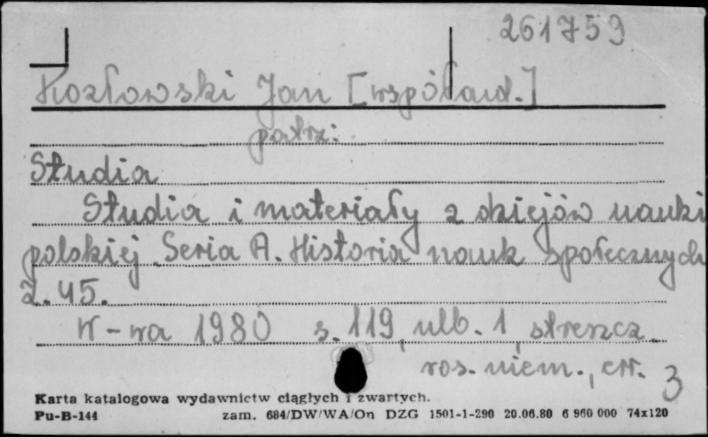 261759
Kozłowski Jan [współaud.]
patrz:
Studia
Studia i materiały z dziejów nauki
polskiej. Seria A. Historia nauk społecznych
Z. 45.
W-wa 1980 s. 119, ulb. 1, streszcz.
ros. niem., err. 3
Karta katalogowa wydawnictw ciągłych i zwartych.
Pu-B-144 zam. 684/DW/WA/On DZG 1501-1-290 20.06.80 6 960 000 74x120